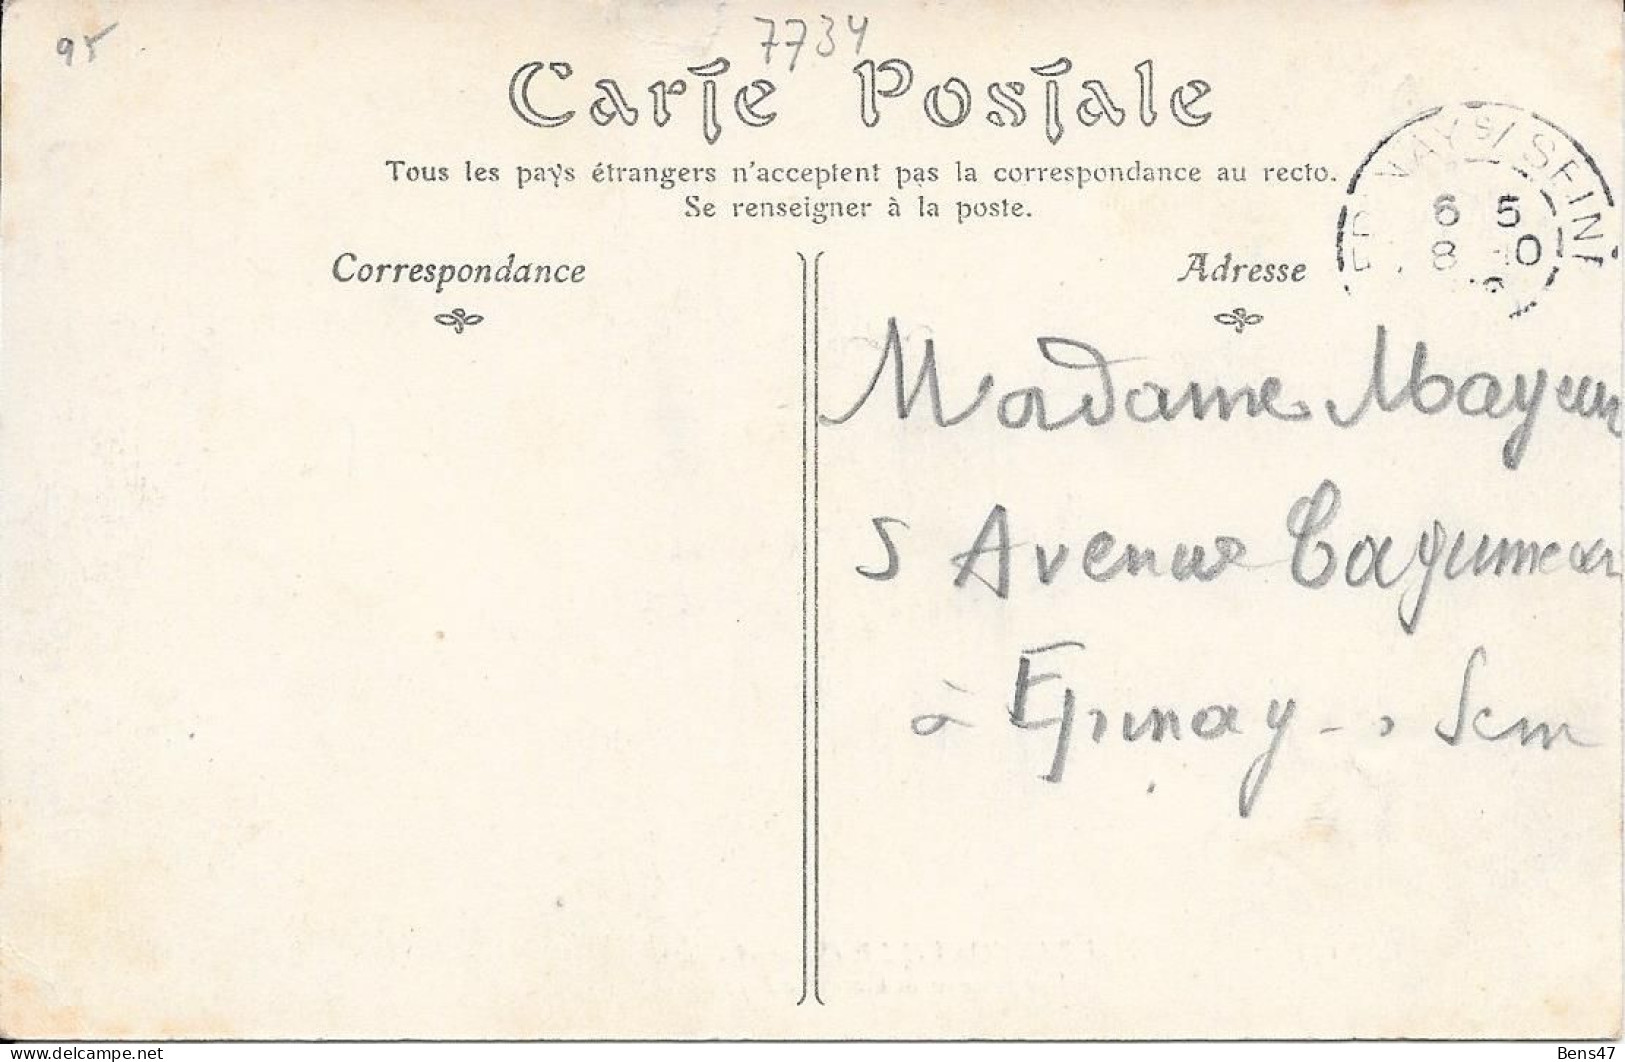 95
7734
Carte Postale
Tous les pays étrangers n'acceptent pas la correspondance au recto.
Se renseigner à la poste.
Correspondance
Adresse
NAY S/ SEINE
6 5
8
Madame Mayeur
5 Avenue
à Epinay - s Seine
Bens47